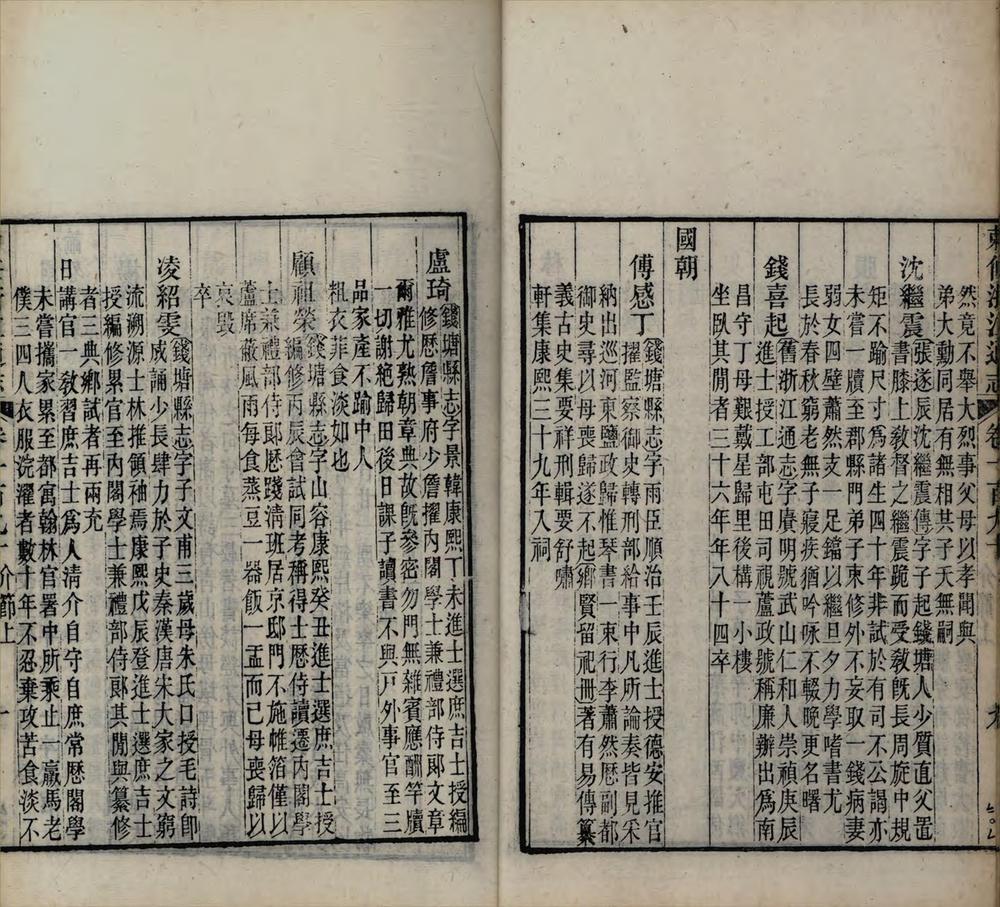 敕修浙江通志 卷一百九十 介節上
然竟不舉大烈事父母以孝聞與
弟大勳同居有無相共子天無嗣
沈繼震張遂辰沈繼震傳字子起錢塘人少質直父置
書膝上敎督之繼震跪而受敎旣長周旋中規
矩不踰尺寸爲諸生四十年非試於有司不公謁亦
未嘗一牘至郡縣門弟子束修外不妄取一錢病妻
弱女四壁蕭然支一足鐺以繼旦夕力學嗜書尤
長於春秋窮老無子寢疾猶吟咏不輟晚更名曙
錢喜起舊浙江通志字賡明號武山仁和人崇禎庚辰
進士授工部屯田司視蘆政號稱廉辦出爲南
昌守丁母艱戴星歸里後構一小樓
坐臥其閒者三十六年年八十四卒
國朝
傅感丁錢塘縣志字雨臣順治壬辰進士授德安推官
擢監察御史轉刑部給事中凡所論奏皆見采
納出巡河東鹽政歸惟琴書一束行李蕭然歷副都
御史尋以母喪歸遂不起鄉賢留祀冊著有易傳纂
義古史集要祥刑輯要舒嘯
軒集康熙三十九年入祠
盧琦錢塘縣志字景韓康熙丁未進士選庶吉士授編
修歷詹事府少詹擢內閣學士兼禮部侍郞文章
爾雅尤熟朝章典故旣參密勿門無雜賓應酬竿牘
一切謝絕歸田後日課子讀書不與戸外事官至三
品家產不踰中人
粗衣菲食淡如也
顧祖榮錢塘縣志字山容康熙癸丑進士選庶吉士授
編修丙辰會試同考稱得士歷侍讀遷內閣學
士兼禮部侍郞歷踐淸班居京邸門不施帷箔僅以
蘆席蔽風雨每食蒸豆一器飯一盂而已母喪歸以
哀毀
卒
凌紹雯錢塘縣志字子文甫三歲母朱氏口授毛詩卽
成誦少長肆力於子史秦漢唐宋大家之文窮
流溯源士林推領袖焉康熙戊辰登進士選庶吉士
授編修累官至內閣學士兼禮部侍郞其閒與纂修
者三典鄉試者再兩充
日講官一敎習庶吉士爲人淸介自守自庶常歷閣學
未嘗攜家累至都寓翰林官署中所乘止一羸馬老
僕三四人衣服浣濯者數十年不忍棄攻苦食淡不